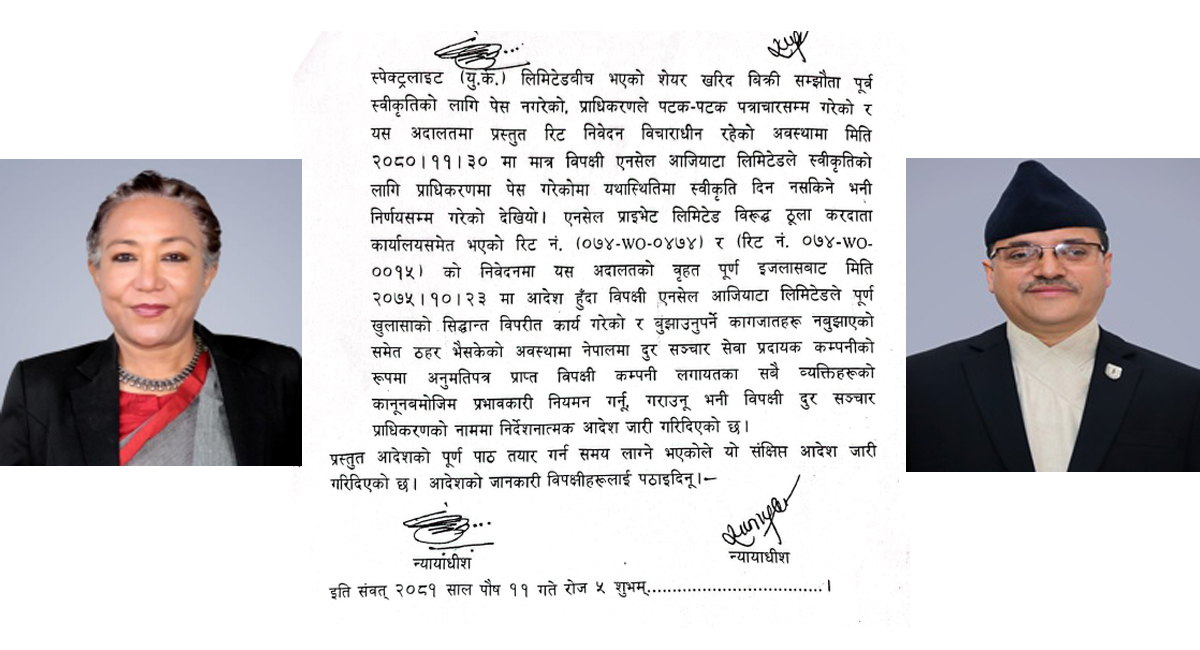 स्पेक्ट्रलाइट (यु.के.) लिमिटेडबीच भएको शेयर खरिद बिक्री सम्झौता पूर्व
स्वीकृतिको लागि पेस नगरेको, प्राधिकरणले पटक-पटक पत्राचारसम्म गरेको र
यस अदालतमा प्रस्तुत रिट निवेदन विचाराधीन रहेको अवस्थामा मिति
२०८०।११।३० मा मात्र विपक्षी एनसेल आजियाटा लिमिटेडले स्वीकृतिको
लागि प्राधिकरणमा पेस गरेकोमा यथास्थितिमा स्वीकृति दिन नसकिने भनी
निर्णयसम्म गरेको देखियो। एनसेल प्राइभेट लिमिटेड विरूद्ध ठूला करदाता
कार्यालयसमेत भएको रिट नं. (०७४-WO-०४७४) र (रिट नं. ०७४-WO-
००१५) को निवेदनमा यस अदालतको वृहत पूर्ण इजलासबाट मिति
२०७५।१०।२३ मा आदेश हुँदा विपक्षी एनसेल आजियाटा लिमिटेडले पूर्ण
खुलासाको सिद्धान्त विपरीत कार्य गरेको र बुझाउनुपर्ने कागजातहरू नबुझाएको
समेत ठहर भैसकेको अवस्थामा नेपालमा दुर सञ्चार सेवा प्रदायक कम्पनीको
रूपमा अनुमतिपत्र प्राप्त विपक्षी कम्पनी लगायतका सबै व्यक्तिहरूको
कानूनबमोजिम प्रभावकारी नियमन गर्नू, गराउनू भनी विपक्षी दुर सञ्चार
प्राधिकरणको नाममा निर्देशनात्मक आदेश जारी गरिदिएको छ।
प्रस्तुत आदेशको पूर्ण पाठ तयार गर्न समय लाग्ने भएकोले यो संक्षिप्त आदेश जारी
गरिदिएको छ। आदेशको जानकारी विपक्षीहरूलाई पठाइदिनू।–
न्यायाधीश
न्यायाधीश
इति संवत् २०८१ साल पौष ११ गते रोज ५ शुभम्..................................।